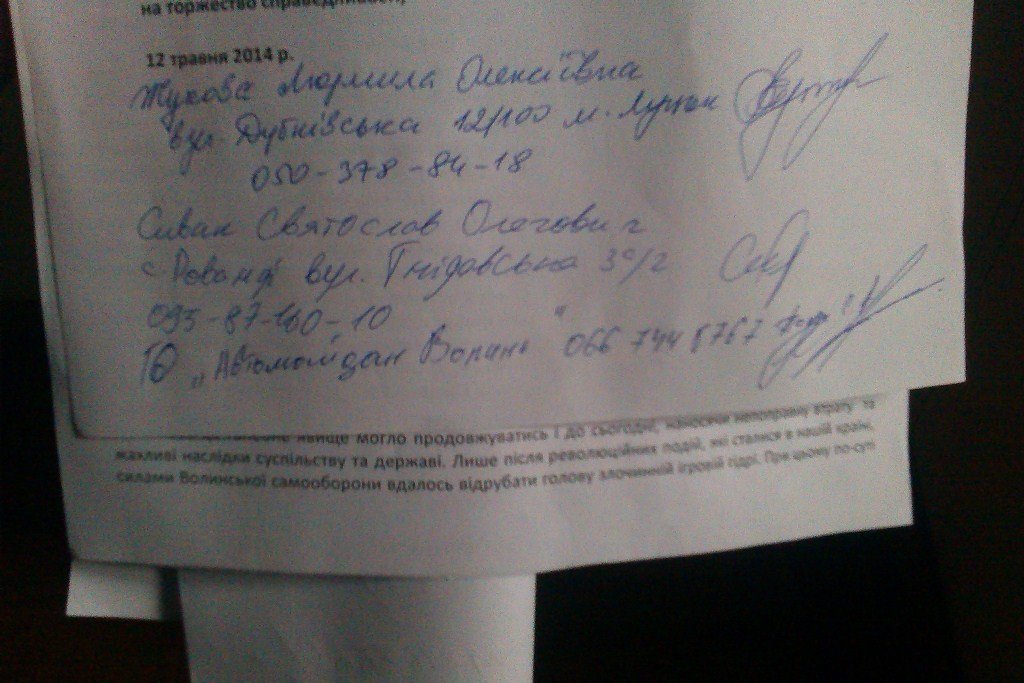 на торжество справедливості,
12 травня 2014 р.
Жукова Людмила Олексіївна
вул. Дубнівська 12/100 м. Луцьк
050-378-84-18
Сивак Святослав Олегович
с. вул. Гнідавська
095-87-160-10
ГО „Автомайдан Волинь" 066 744 8767
явище могло продовжуватись і до сьогодні, наносячи непоправну втрату та
жахливі наслідки суспільству та державі. Лише після революційних подій, які сталися в нашій країні,
силами Волинської самооборони вдалось відрубати голову злочинній ігровій гідрі. При цьому по-суті